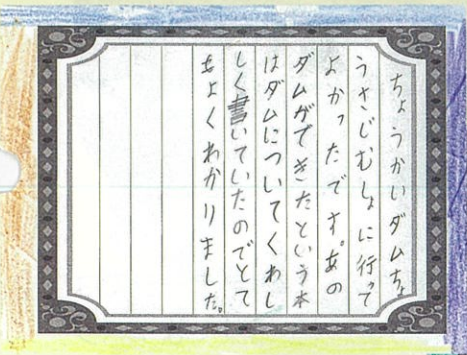 ちょうかいダムちょ
うさじむしょに行って
よかったです。あの
ダムができたという本
はダムについてくわし
しく書いていたのでとて
もよくわかりました。